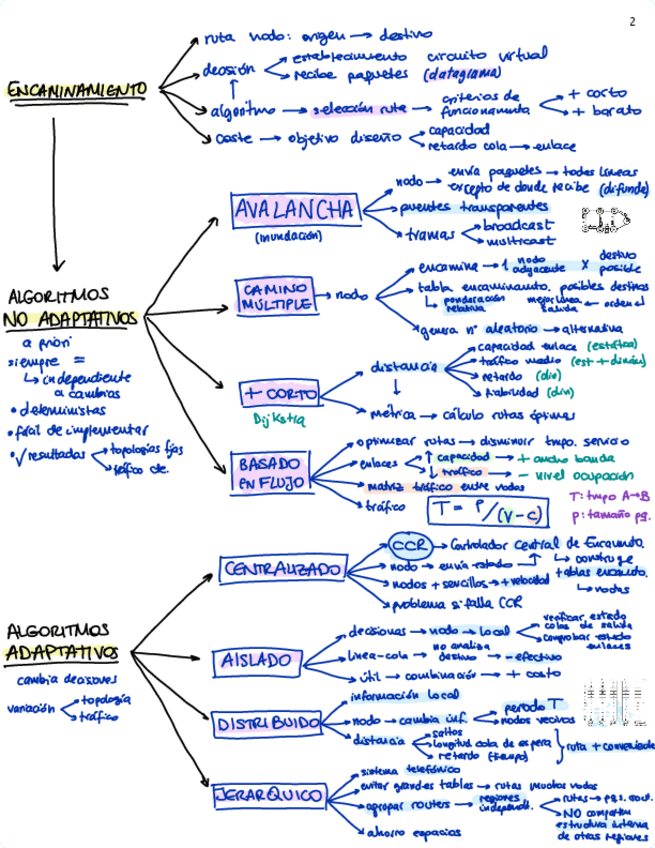 2
ruta nodo: origen → destino
ENCAMINAMIENTO
decisión
establecimiento circuito virtual
recibe paquetes (datagrama)
algoritmo → selección ruta → criterios de funcionamiento
+ corto
+ barato
coste → objetivo diseño
capacidad
retardo cola → enlace
AVALANCHA
(inundación)
nodo → envía paquetes → todas líneas
excepto de donde recibe (difunde)
puentes transparentes
tramas
broadcast
multicast
ALGORITMOS
NO ADAPTATIVOS
a priori
siempre =
↳ independiente
a cambios
• deterministas
• fácil de implementar
• √ resultados
topologías fijas
tráfico cte.
CAMINO
MÚLTIPLE
→ nodo
encamina → 1 nodo adyacente x destino posible
tabla encaminamto. posibles destinos
↳ ponderación relativa
mejor línea salida ← orden
genera nº aleatorio → alternativa
+ CORTO
Dijkstra
distancia
capacidad enlace (estática)
tráfico medio (est + dinám)
retardo (din)
fiabilidad (din)
métrica → cálculo rutas óptimas
BASADO
EN FLUJO
optimizar rutas → disminuir tmpo. servicio
enlaces
↑ capacidad → + ancho banda
↓ tráfico → – nivel ocupación
matriz tráfico entre nodos
tráfico
T = P/(V – C)
T: tmpo A→B
p: tamaño pq.
CENTRALIZADO
CCR → Controlador Central de Encamto.
nodo → envía estado
↳ construye
tablas encamto.
↳ nodos
nodos + sencillos → + velocidad
problema si falla CCR
ALGORITMOS
ADAPTATIVOS
cambia decisiones
variación
topología
tráfico
AISLADO
decisiones → nodo → local
verificar estado
colas de salida
comprobar estado
enlaces
línea-cola → no analiza destino → – efectivo
útil → combinación → + costo
DISTRIBUIDO
información local
nodo → cambia inf.
periodo T
nodos vecinos
distancia
saltos
longitud cola de espera
retardo (tiempo)
ruta + conveniente
JERÁRQUICO
sistema telefónico
evitar grandes tablas → rutas muchos nodos
agrupar routers → regiones independ.
rutas →
NO comparten
estructura interna
de otras regiones
ahorro espacios